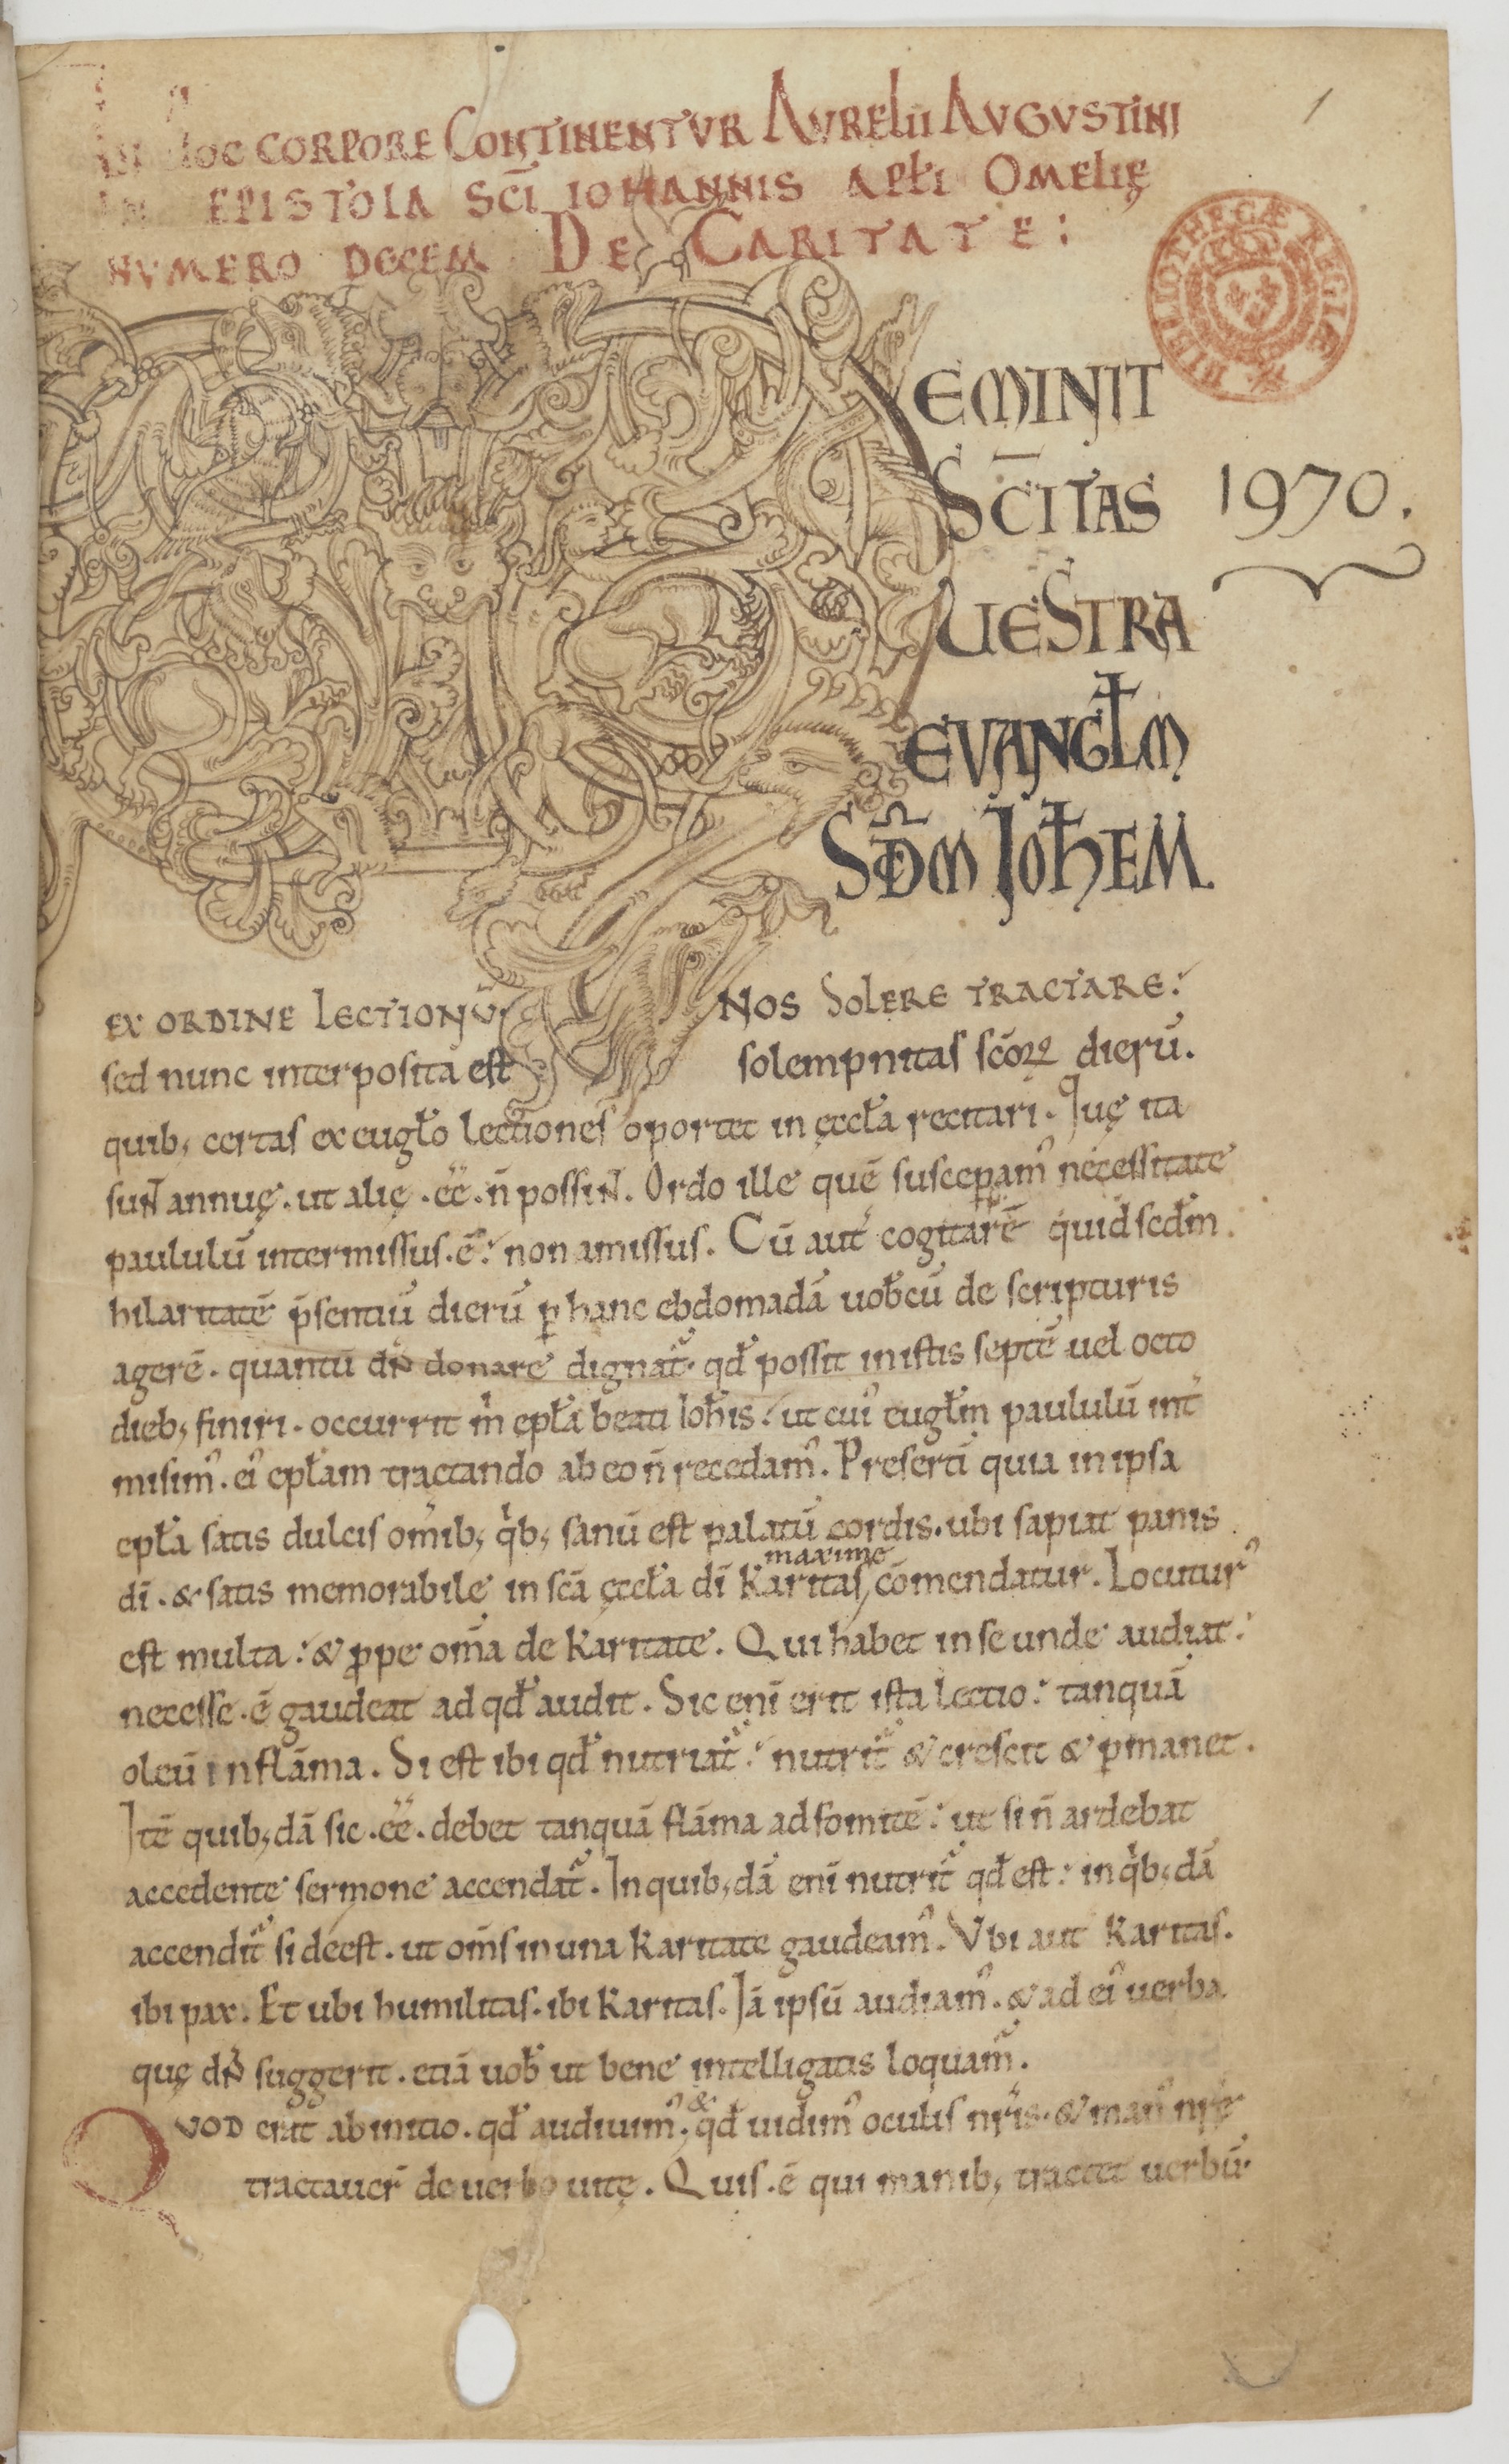 IN hoc CORPORE CONTINENTVR AVRELII AVGVSTINI
IN EPISTOLA SCĪ IOHANNIS APŁI OMELIĘ
NVMERO DECEM DE CARITATE:
1
BIBLIOTHECÆ REGIÆ
EMINIT
SC̄ITAS
1970.
UESTRA
EVANGŁM
SƉM IOħEM
EX ORDINE LECTIONŪ NOS SOLERE TRACTARE:
sed nunc interposita est solempnitas scōꝝ dierū.
quib; certas ex eugło lectiones oportet in ęccła recitari. Quę ita
suNT annuę. ut alię .ēē. n̄ possiNT. Ordo ille quē suscepam᾿ necessitate
paululū intermissus .ē. non amissus. Cū aut̄ cogitarē quid scd̄m
hilaritatē p̄sentiū dierū ꝑ hanc ebdomadā uob̄cū de scripturis
agerē. quantū dN̄s donare dignat̄. qđ possit in istis septē uel octo
dieb; finiri. occurrit m̄ epła beati Ioħis. ut cui᾿ eugłm paululū int̄
misim᾿. ei᾿ epłam tractando ab eo n̄ recedam᾿. Presertī quia in ipsa
epła satis dulcis om̄ib; qib; sanū est palatū cordis. ubi sapiat panis
maxime
dī. & satis memorabile in scā ęccła dī Karitas, cōmendatur. Locutur᾿
est multa: & ꝓpe om̄a de Karitate. Qui habet in se unde audiat:
necesse .ē gaudeat ad qđ audit. Sic enī erit ista lectio: tanquā
oleū in flāma. Si est ibi qđ nutriat̄: nutrit̄ & crescit & ꝑmanet.
Itē quib;dā sic .ēē. debet tanquā flāma ad fomitē: ut si n̄ ardebat
accedente sermone accendat̄. In quib;dā enī nutrit̄ qđ est: in qib;dā
accendit̄ si deest. ut om̄s in una Karitate gaudeam᾿. Vbi aut Karitas.
ibi pax. Et ubi humilitas. ibi Karitas. Iā ipsū audiam᾿. & ad ei᾿ uerba
quę dN̄s suggerit. etiā uob̄ ut bene intelligatis loquam̄.
&
QVOD erat ab initio. qđ audiuim᾿; qđ uidim᾿ oculis nr̄is. & man᾿ nr̄ę
tractauer̄ de uerbo uitę. Quis .ē qui manib; tractet uerbū